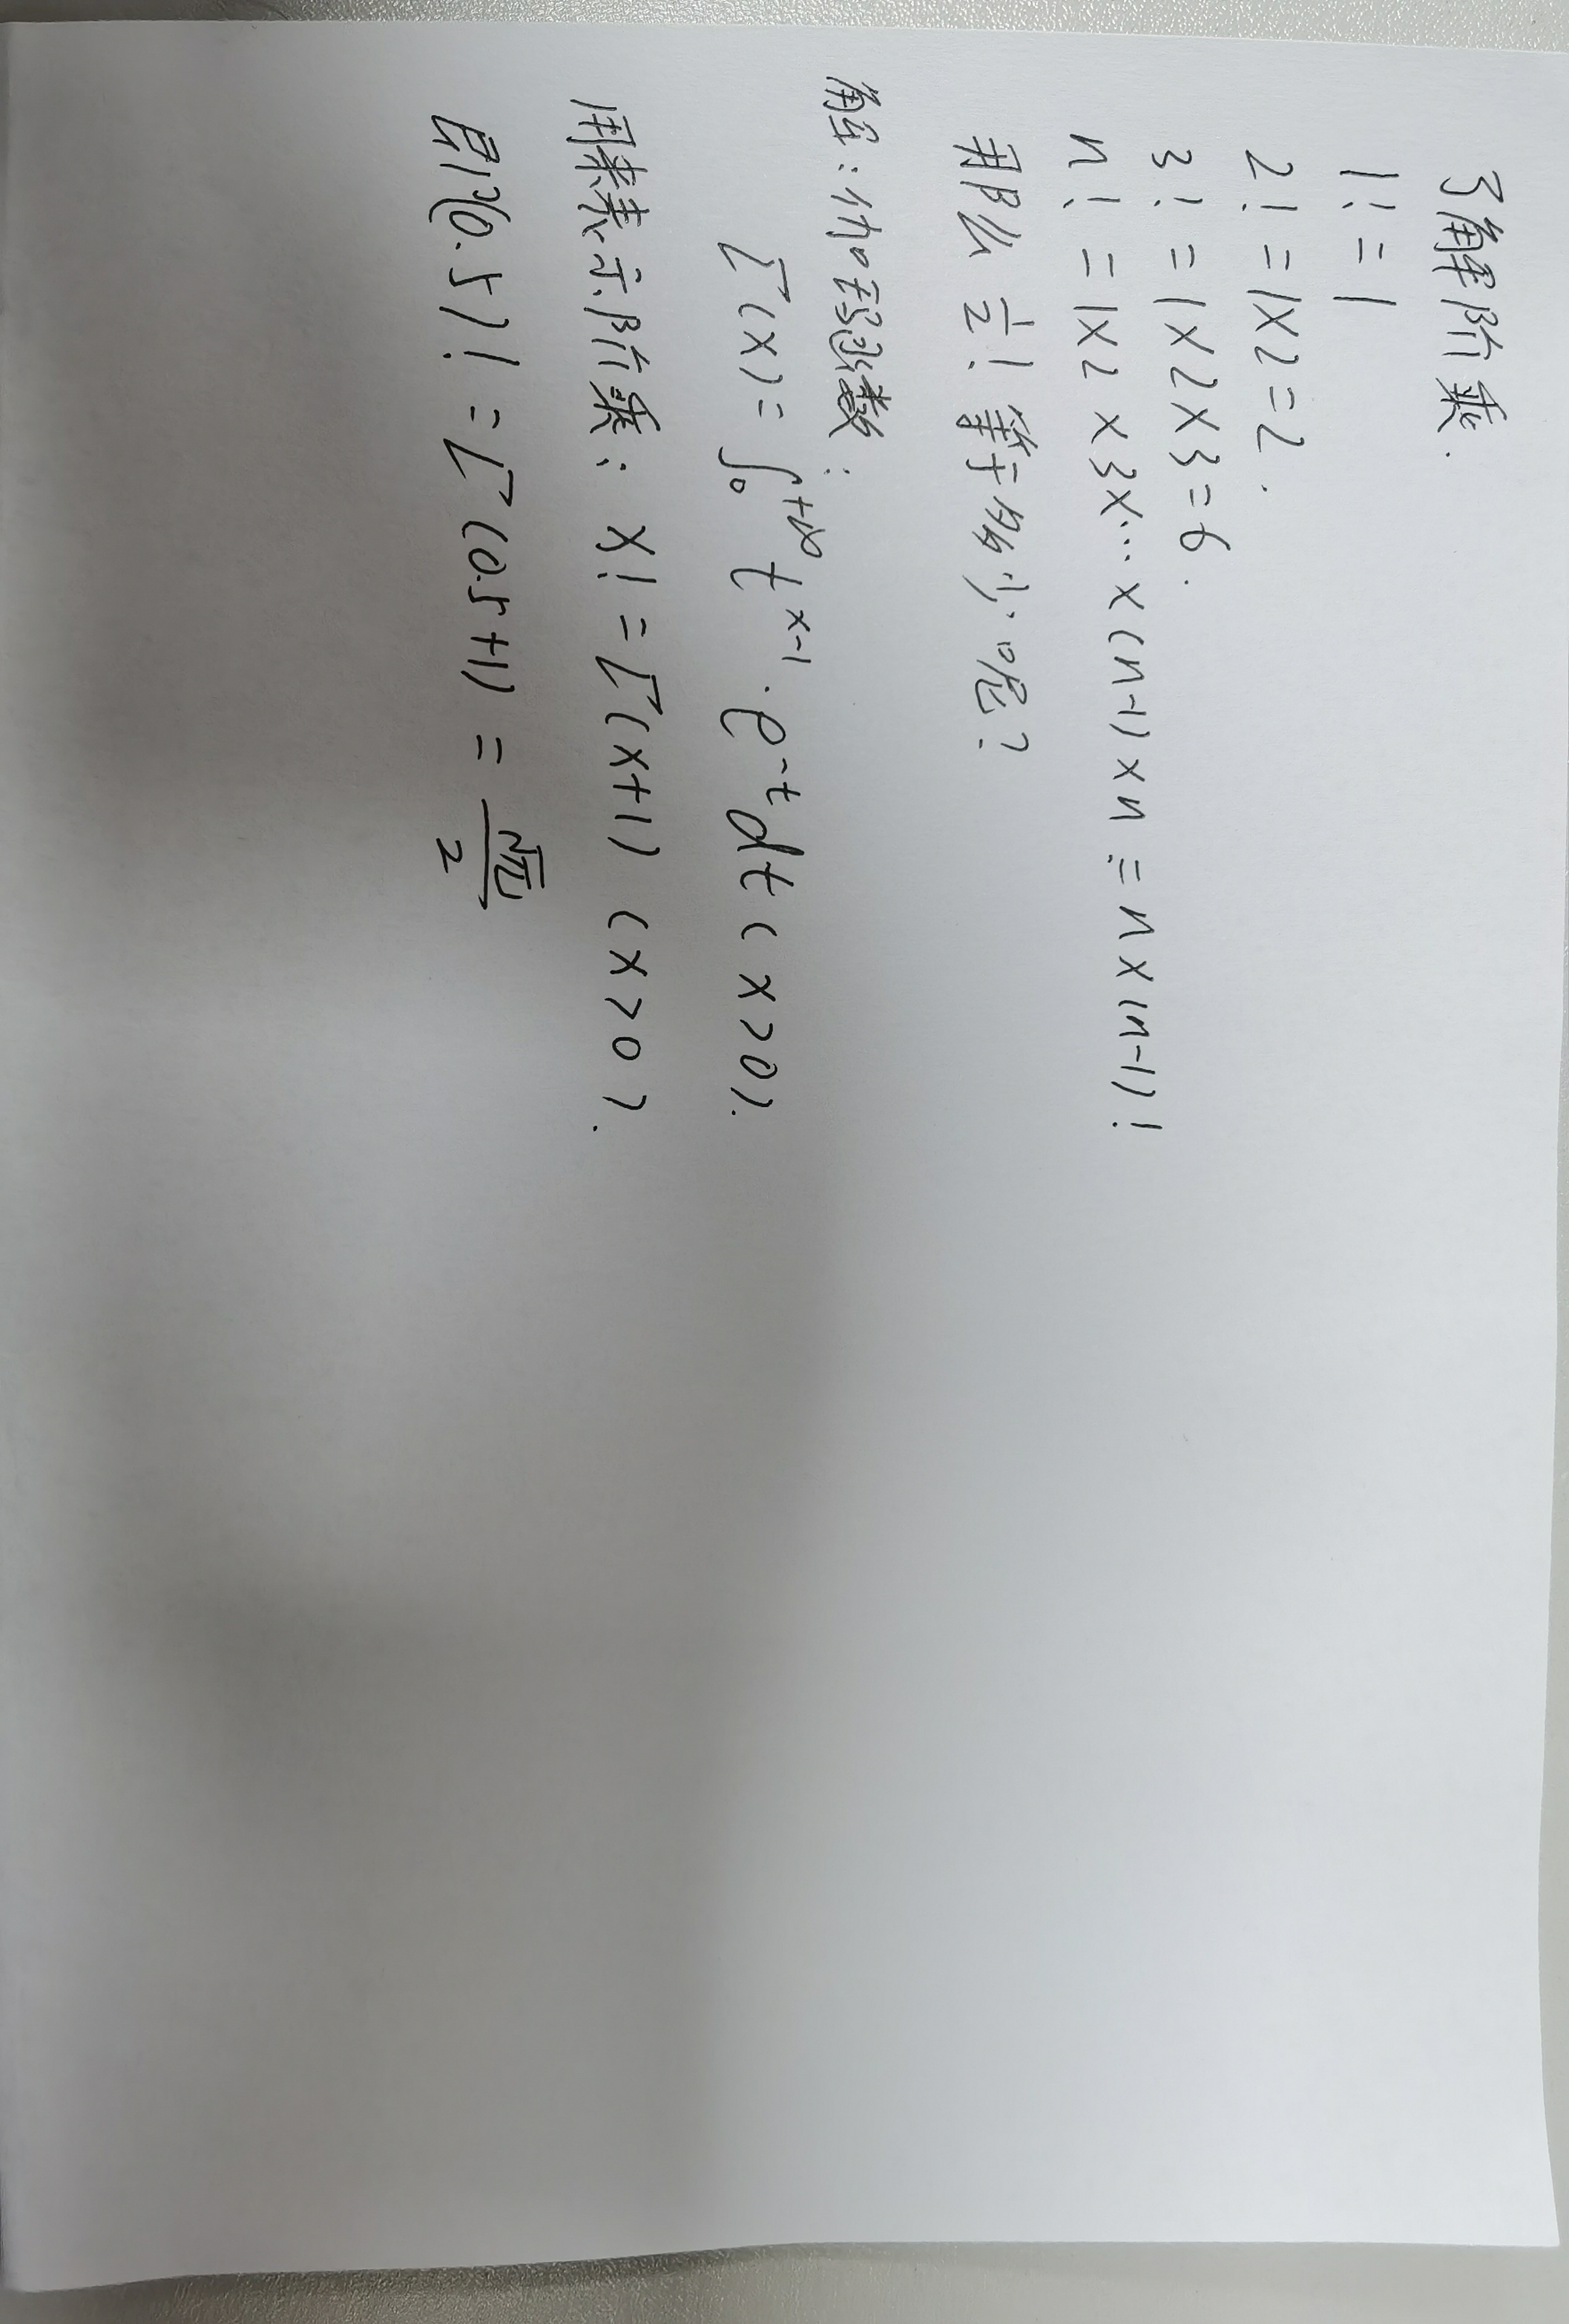 了解阶乘.
1! = 1
2! = 1×2 = 2.
3! = 1×2×3 = 6.
n! = 1×2×3×…×(n-1)×n = n×(n-1)!
那么 1/2! 等于多少呢?
解:伽玛函数:
Γ(x) = ∫₀^{+∞} t^{x-1}·e^{-t}dt (x>0).
用来表示阶乘: x! = Γ(x+1) (x>0).
则(0.5)! = Γ(0.5+1) = √π/2